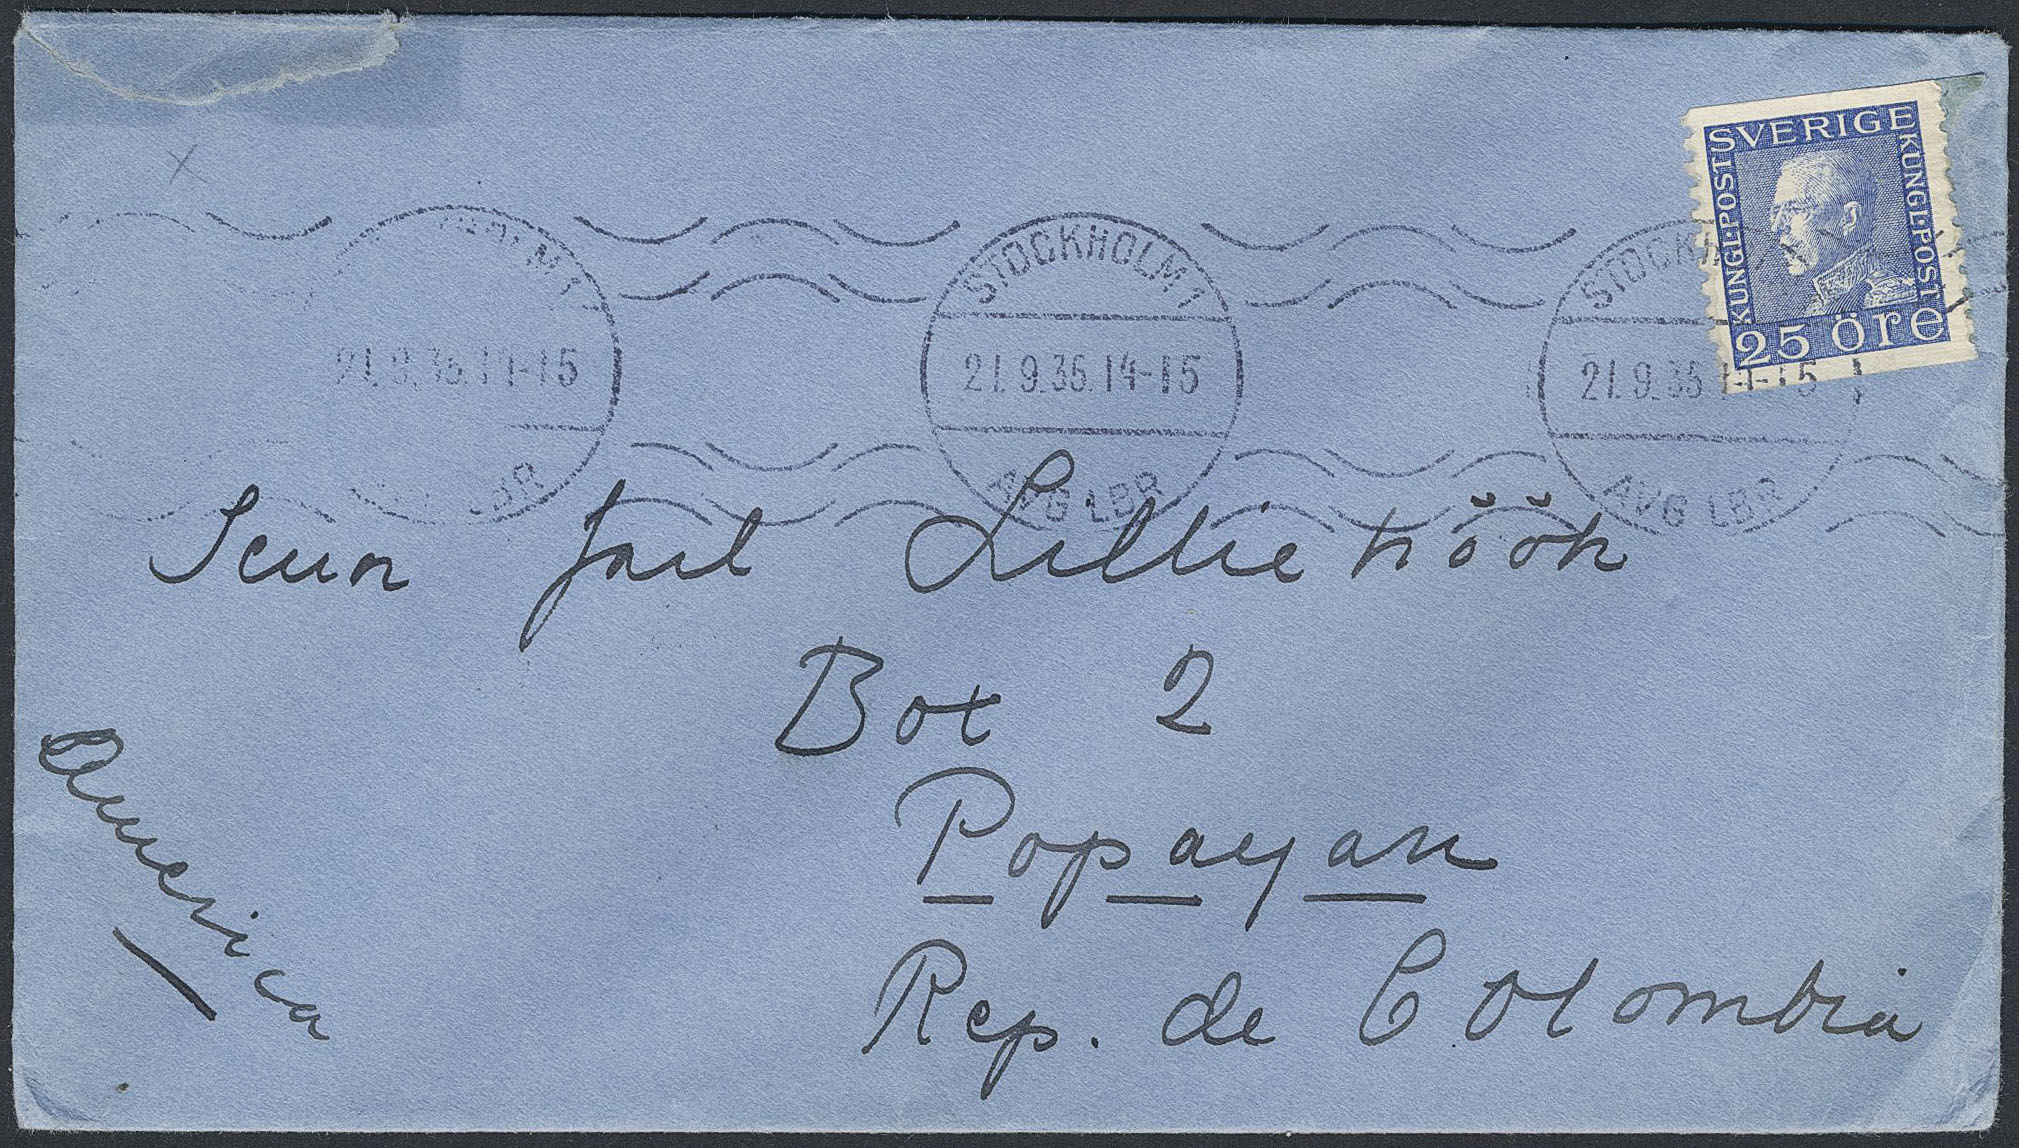 SVERIGE
KUNGL·POST
KUNGL·POST
25 öre
STOCKHOLM 1
21.9.36.14-15
AVG LBR
STOCKHOLM 1
21.9.36.14-15
AVG LBR
STOCKHOLM
21.9.36.14-15
AVG LBR
Lilliehöök
Box 2
Popayan
Rep. de Colombia
America